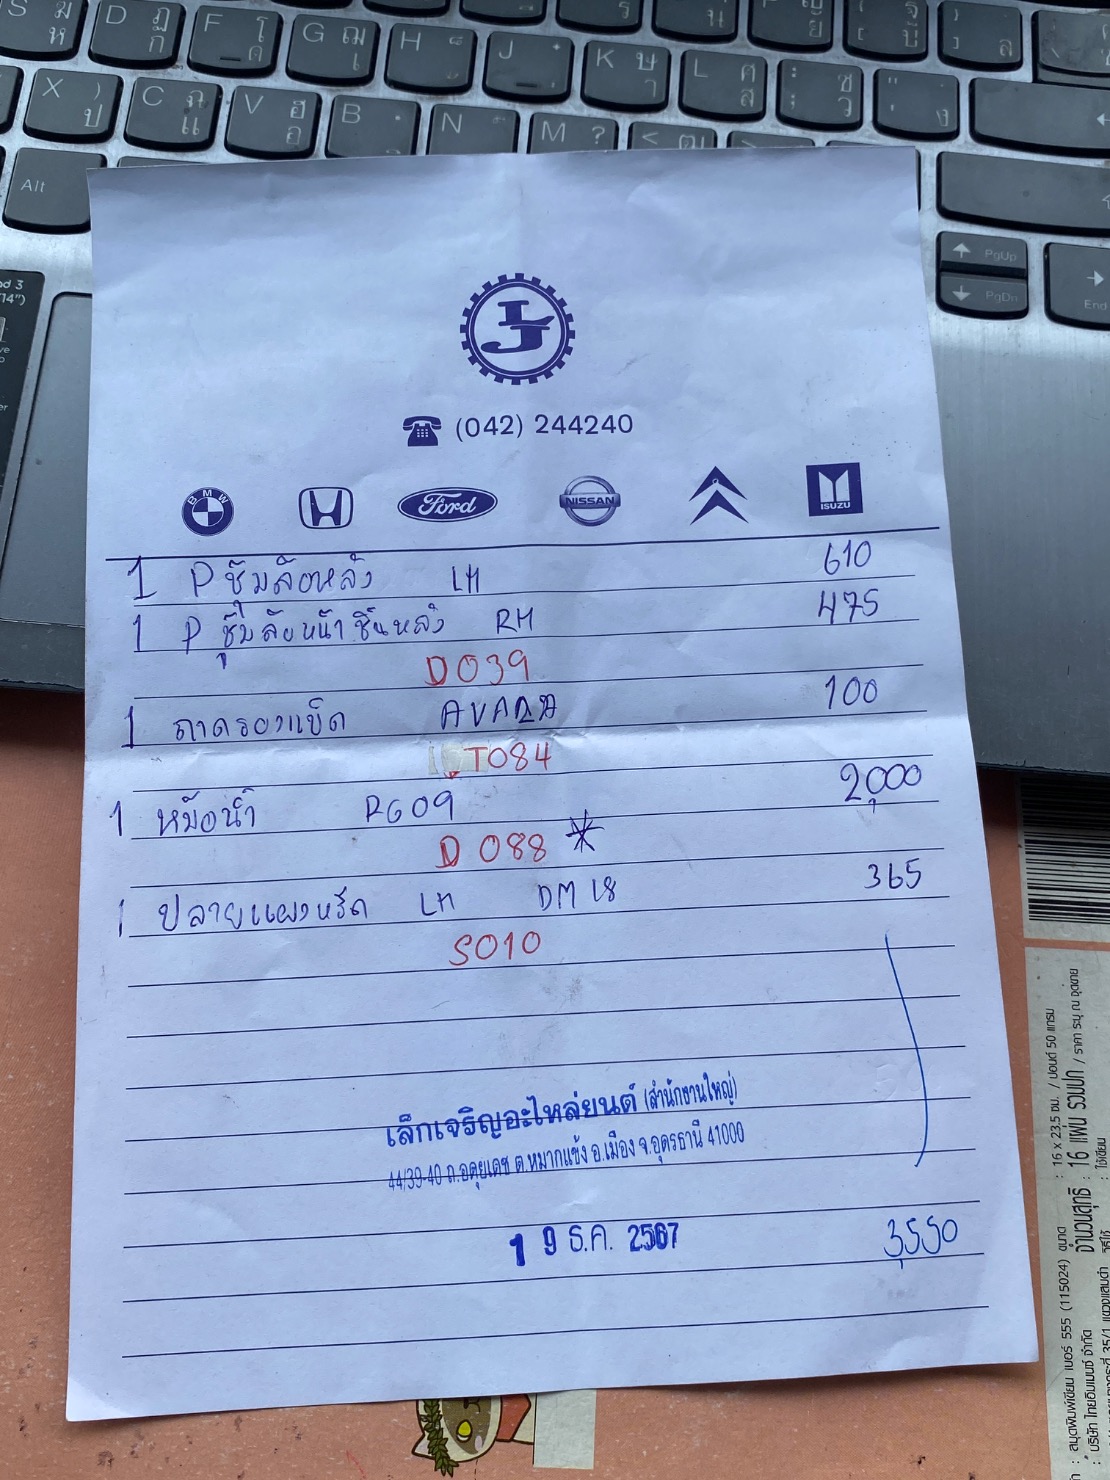 S ม ห
D ฏ ก
F โ ด
G ฌ เ
H ็ ้
J ๋ ่
K ษ า
L ศ ส
: ; ซ ว
X ) ป
C ฉ แ
V ฮ อ
B
N
M ? ท
< ฒ
Alt
PgUp
PgDn
End
(042) 244240
BMW
Ford
NISSAN
ISUZU
1 P ซุ้มล้อหลัง LH 610
1 P ซุ้มล้อหน้าชิ้นหลัง RH 475
D039
1 ถาดรองแบ็ต AVANZA 100
T084
1 หม้อน้ำ RG09 2,000
D 088 *
1 ปลายแผงหรีด LH DM 18 365
S010
เล็กเจริญอะไหล่ยนต์ (สำนักงานใหญ่)
44/39-40 ถ.อดุยเดช ต.หมากแข้ง อ.เมือง จ.อุดรธานี 41000
19 ธ.ค. 2567
3,550
: สมุดพิมพ์เขียน เบอร์ 555 (115024) ขนาด : 16 x 23.5 ซม. / ปอนด์ 50 แกรม
: บริษัท ไทยอิมเมนซ์ จำกัด
จำนวนสุทธิ : 16 แผ่น รวมปก / ราคา ระบุ ณ จุดขาย
วิธีใช้ : ใช้เขียน